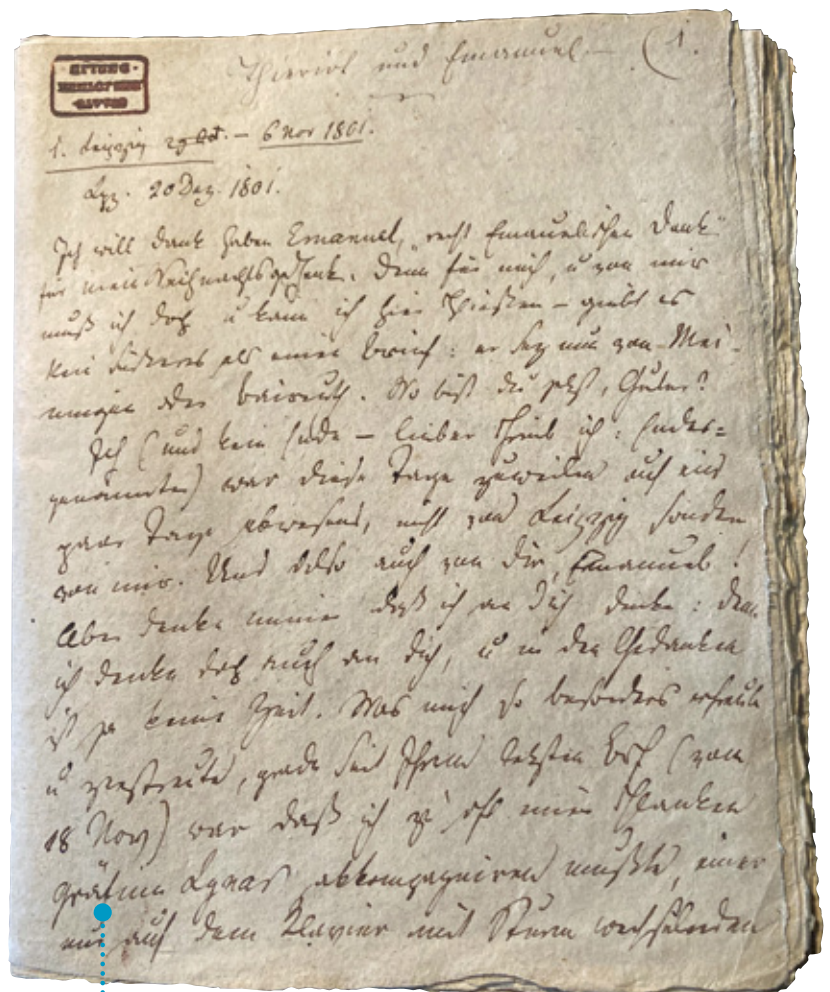 Thieriot und Emanuel — (1.
1. Leipzig 29 Oct. – 6 Nov 1801.
Lpz. 20 Dez. 1801.
Ich will Dank haben Emanuel, „recht Emanuelischen Dank“
für mein Weihnachtsgeschenk. Denn für mich, u von mir
muß ich doch u kann ich hier schließen – giebt es
kein als einen Brief: er sey nun von Mei-
ningen oder Baireuth. Wo bist du jetzt, Guter?
Ich (und kein Jude – lieber schrieb ich:
genannter) war diese Tage zuweilen auch ein
paar Tage abwesend, nicht von Leipzig sondern
von mir. Und also auch von dir, Emanuel!
Aber denke immer daß ich an dich denke: denn
ich denke doch auch an dich, u in den Gedanken
ist ja keine Zeit. Was mich so besonders erfreute
u zerstreute, grade seit Ihrem letzten Brf (vom
18 Nov) war daß ich zu oft einer schlanken
Gräfinn Lynar akkompagniren mußte, einer
nur auf dem Klavier mit Sturm wechselnden